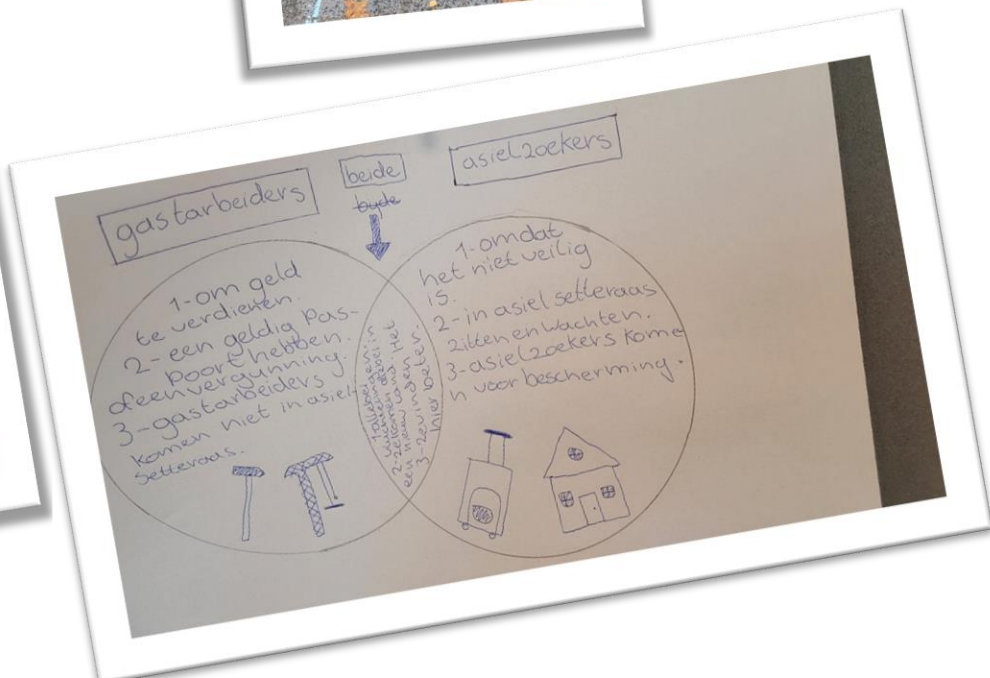 gastarbeiders
beide
asielzoekers
1-om geld
te verdienen.
2-een geldig Pas-
poort hebben.
of een vergunning.
3-gastarbeiders
komen niet in asiel-
setteraas.
2-ze komen in
een nieuw land. Het
3-ze vinden
hier beter.
1-omdat
het niet veilig
is.
2-in asiel setteraas
zitten en wachten.
3-asielzoekers kome
n voor bescherming.